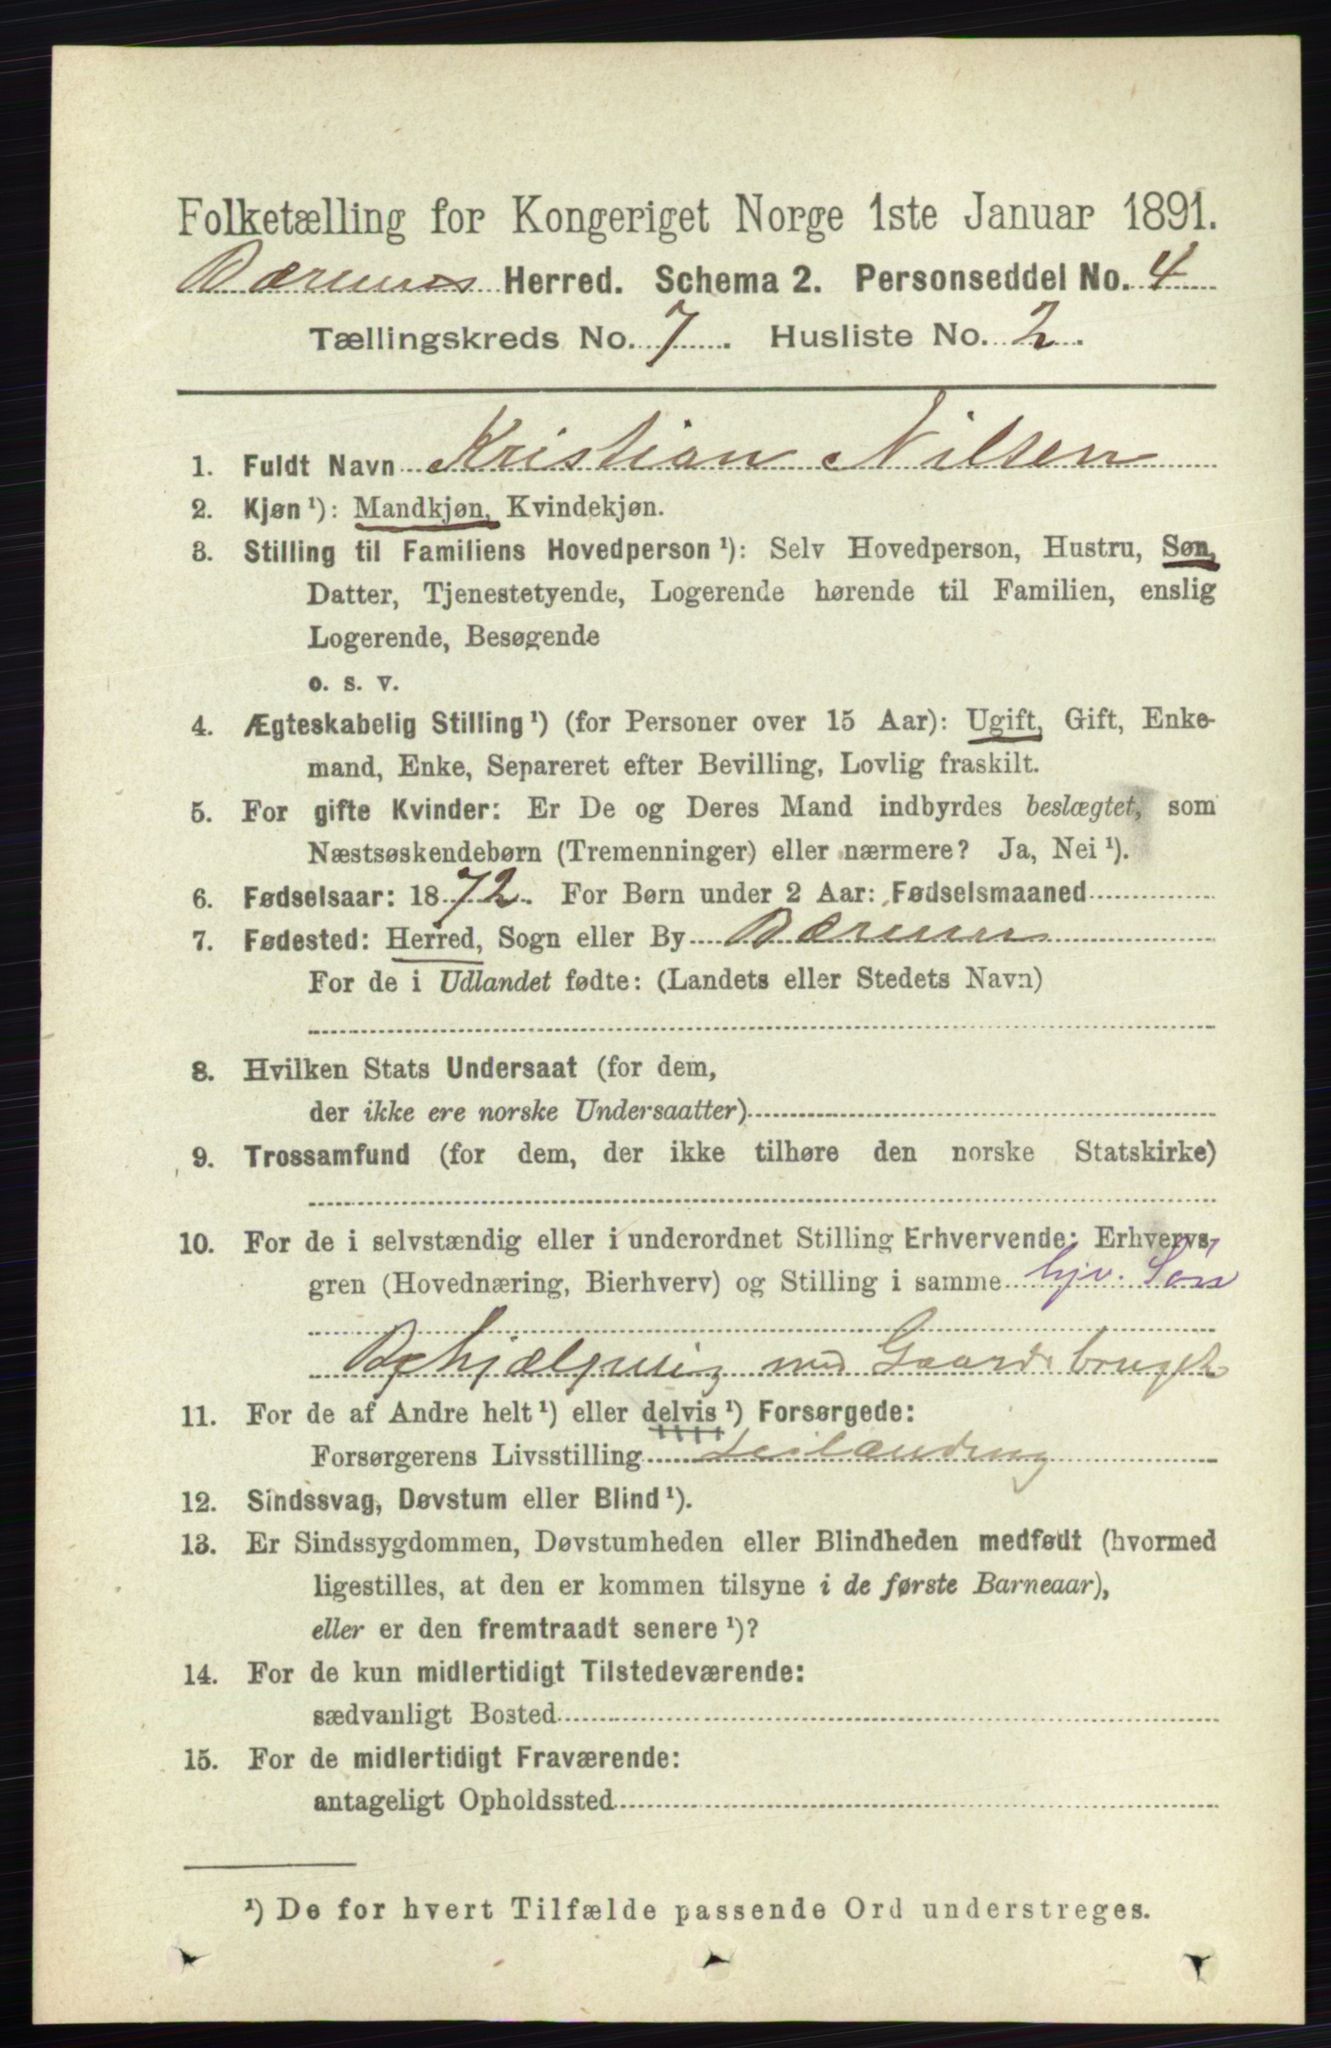 Folketælling for Kongeriget Norge 1ste Januar 1891.
Bærums Herred. Schema 2. Personseddel No. 4
Tællingskreds No. 7. Husliste No. 2.
1. Fuldt Navn Kristian Nilsen
2. Kjøn ¹): Mandkjøn, Kvindekjøn.
3. Stilling til Familiens Hovedperson ¹): Selv Hovedperson, Hustru, Søn,
Datter, Tjenestetyende, Logerende hørende til Familien, enslig
Logerende, Besøgende
o. s. v.
4. Ægteskabelig Stilling ¹) (for Personer over 15 Aar): Ugift, Gift, Enke-
mand, Enke, Separeret efter Bevilling, Lovlig fraskilt.
5. For gifte Kvinder: Er De og Deres Mand indbyrdes beslægtet, som
Næstsøskendebørn (Tremenninger) eller nærmere? Ja, Nei ¹).
6. Fødselsaar: 1872. For Børn under 2 Aar: Fødselsmaaned
7. Fødested: Herred, Sogn eller By Bærum
For de i Udlandet fødte: (Landets eller Stedets Navn)
8. Hvilken Stats Undersaat (for dem,
der ikke ere norske Undersaatter)
9. Trossamfund (for dem, der ikke tilhøre den norske Statskirke)
10. For de i selvstændig eller i underordnet Stilling Erhvervende: Erhvervs-
gren (Hovednæring, Bierhverv) og Stilling i samme hjv. Søn
Behjælpelig med Gaardsbruget
11. For de af Andre helt ¹) eller delvis ¹) Forsørgede:
Forsørgerens Livsstilling Leilænding
12. Sindssvag, Døvstum eller Blind ¹).
13. Er Sindssygdommen, Døvstumheden eller Blindheden medfødt (hvormed
ligestilles, at den er kommen tilsyne i de første Barneaar),
eller er den fremtraadt senere ¹)?
14. For de kun midlertidigt Tilstedeværende:
sædvanligt Bosted
15. For de midlertidigt Fraværende:
antageligt Opholdssted
¹) De for hvert Tilfælde passende Ord understreges.